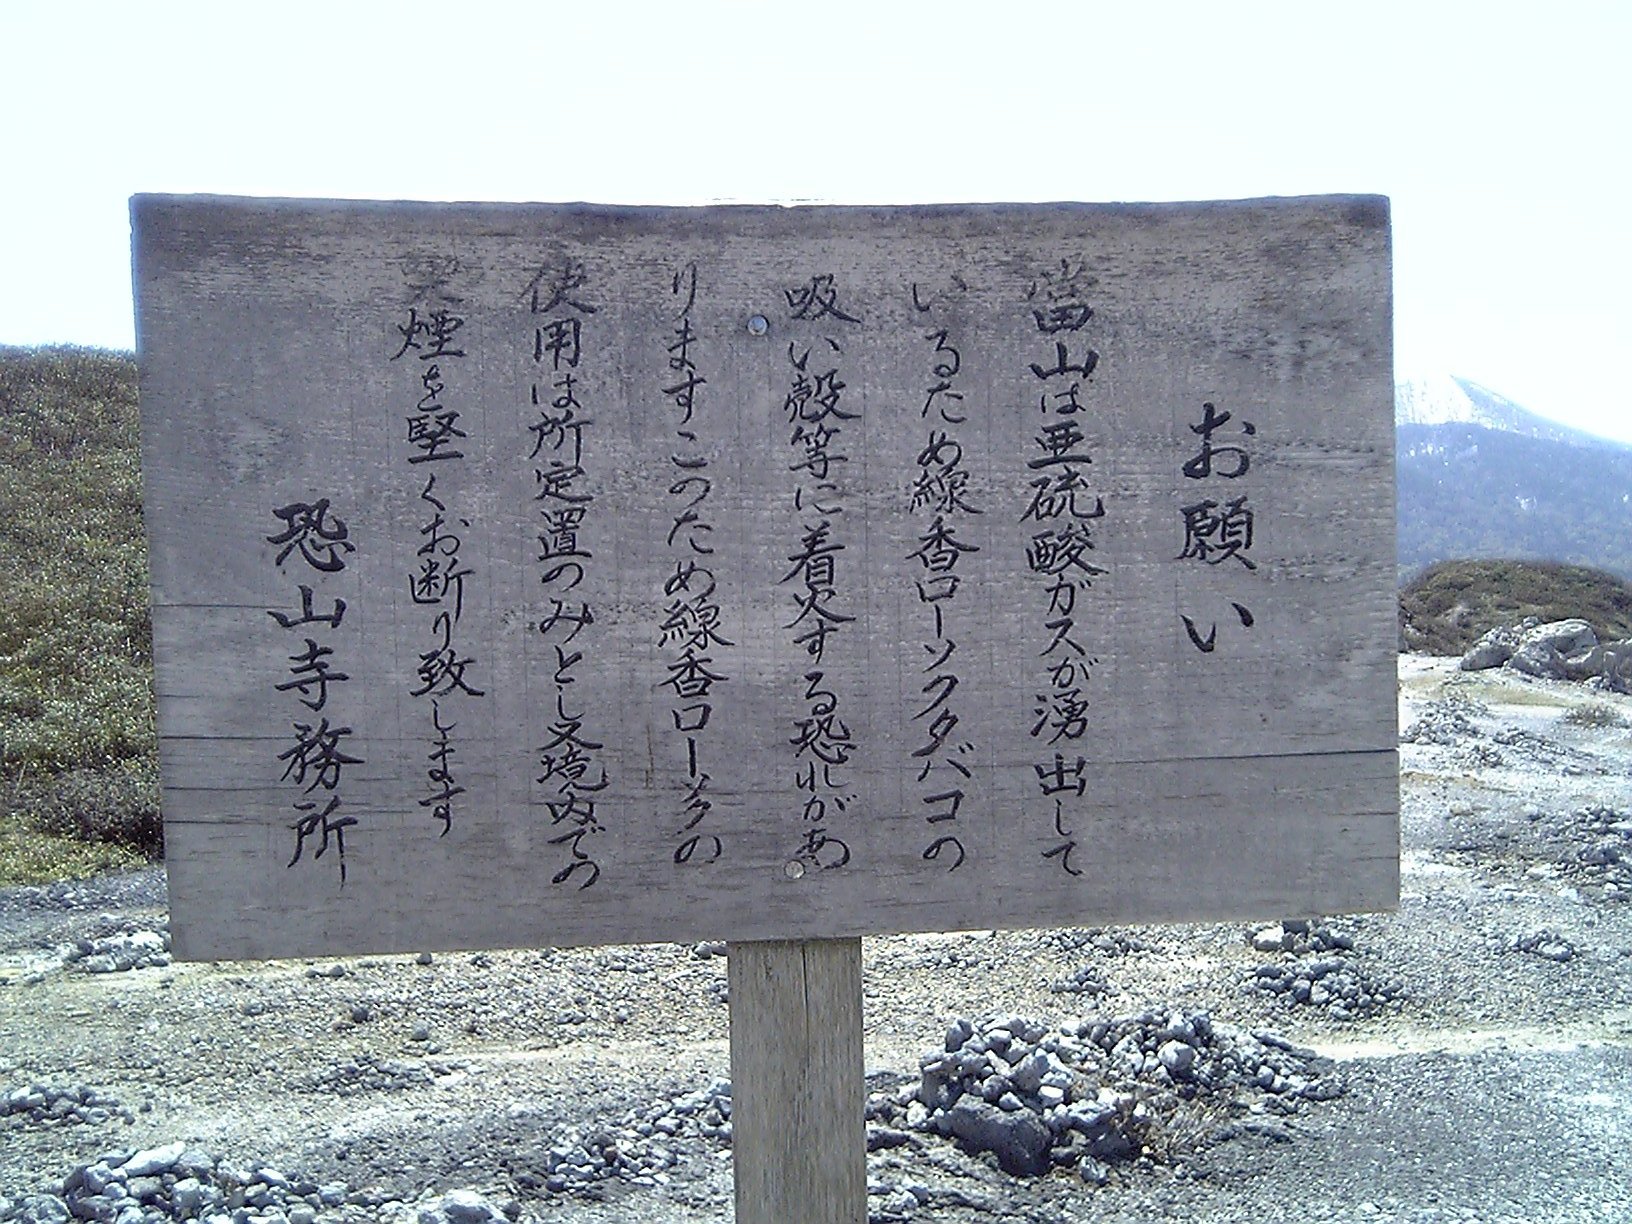 お願い
当山は亜硫酸ガスが湧出して
いるため線香ローソクタバコの
吸い殻等に着火する恐れがあ
りますこのため線香ローソクの
使用は所定置のみとし又境内での
煙を堅くお断り致します
恐山寺務所